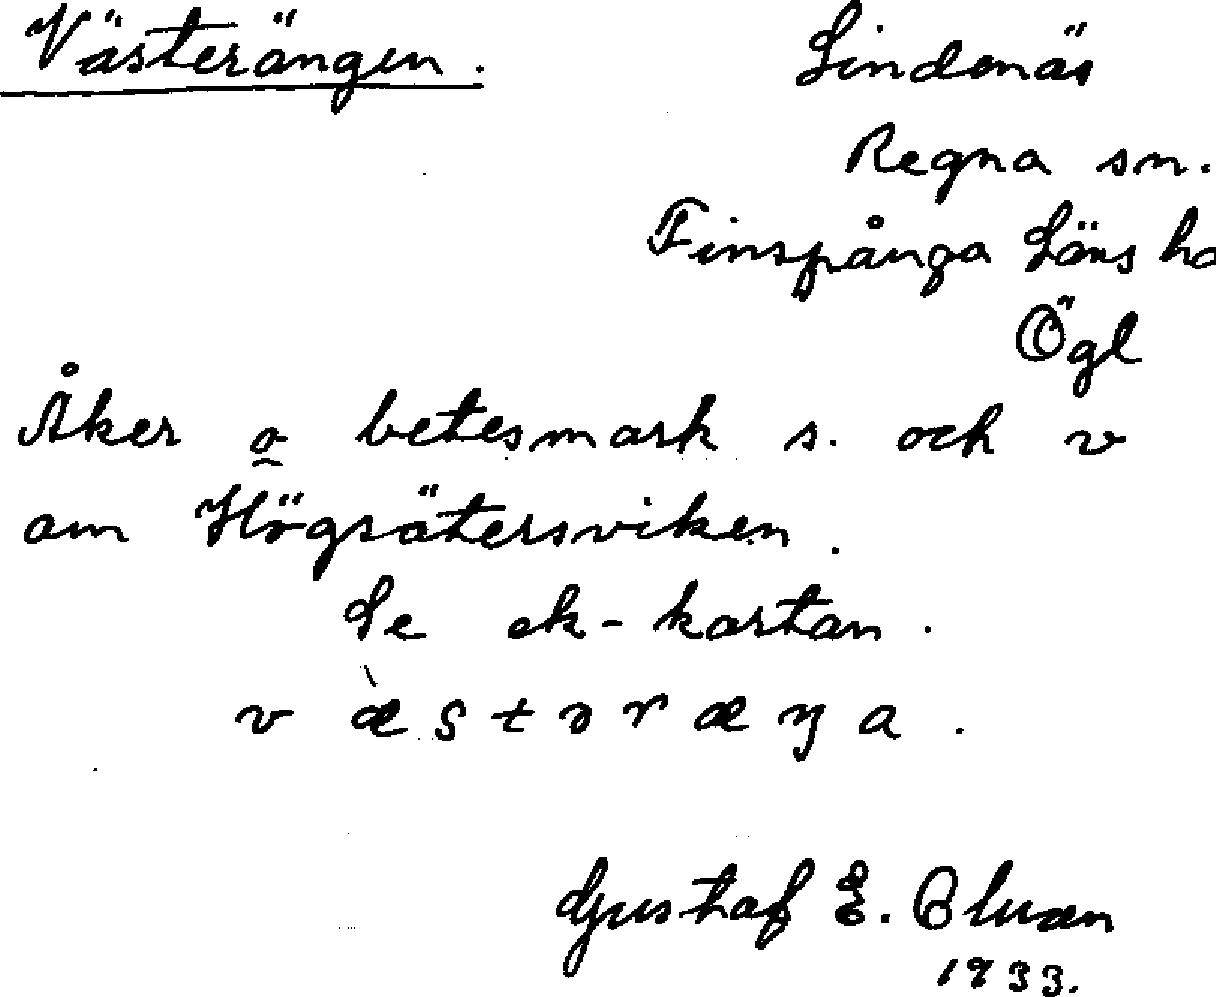 Västerängen. Lindenäs
Regna sn.
Finspånga Läns ha
Ögl
Åker o betesmark s. och v
om Högsätersviken.
Se ek-kartan.
v æ̀ s t ə r æ ŋ a .
Gustaf E. Bluan
1933.